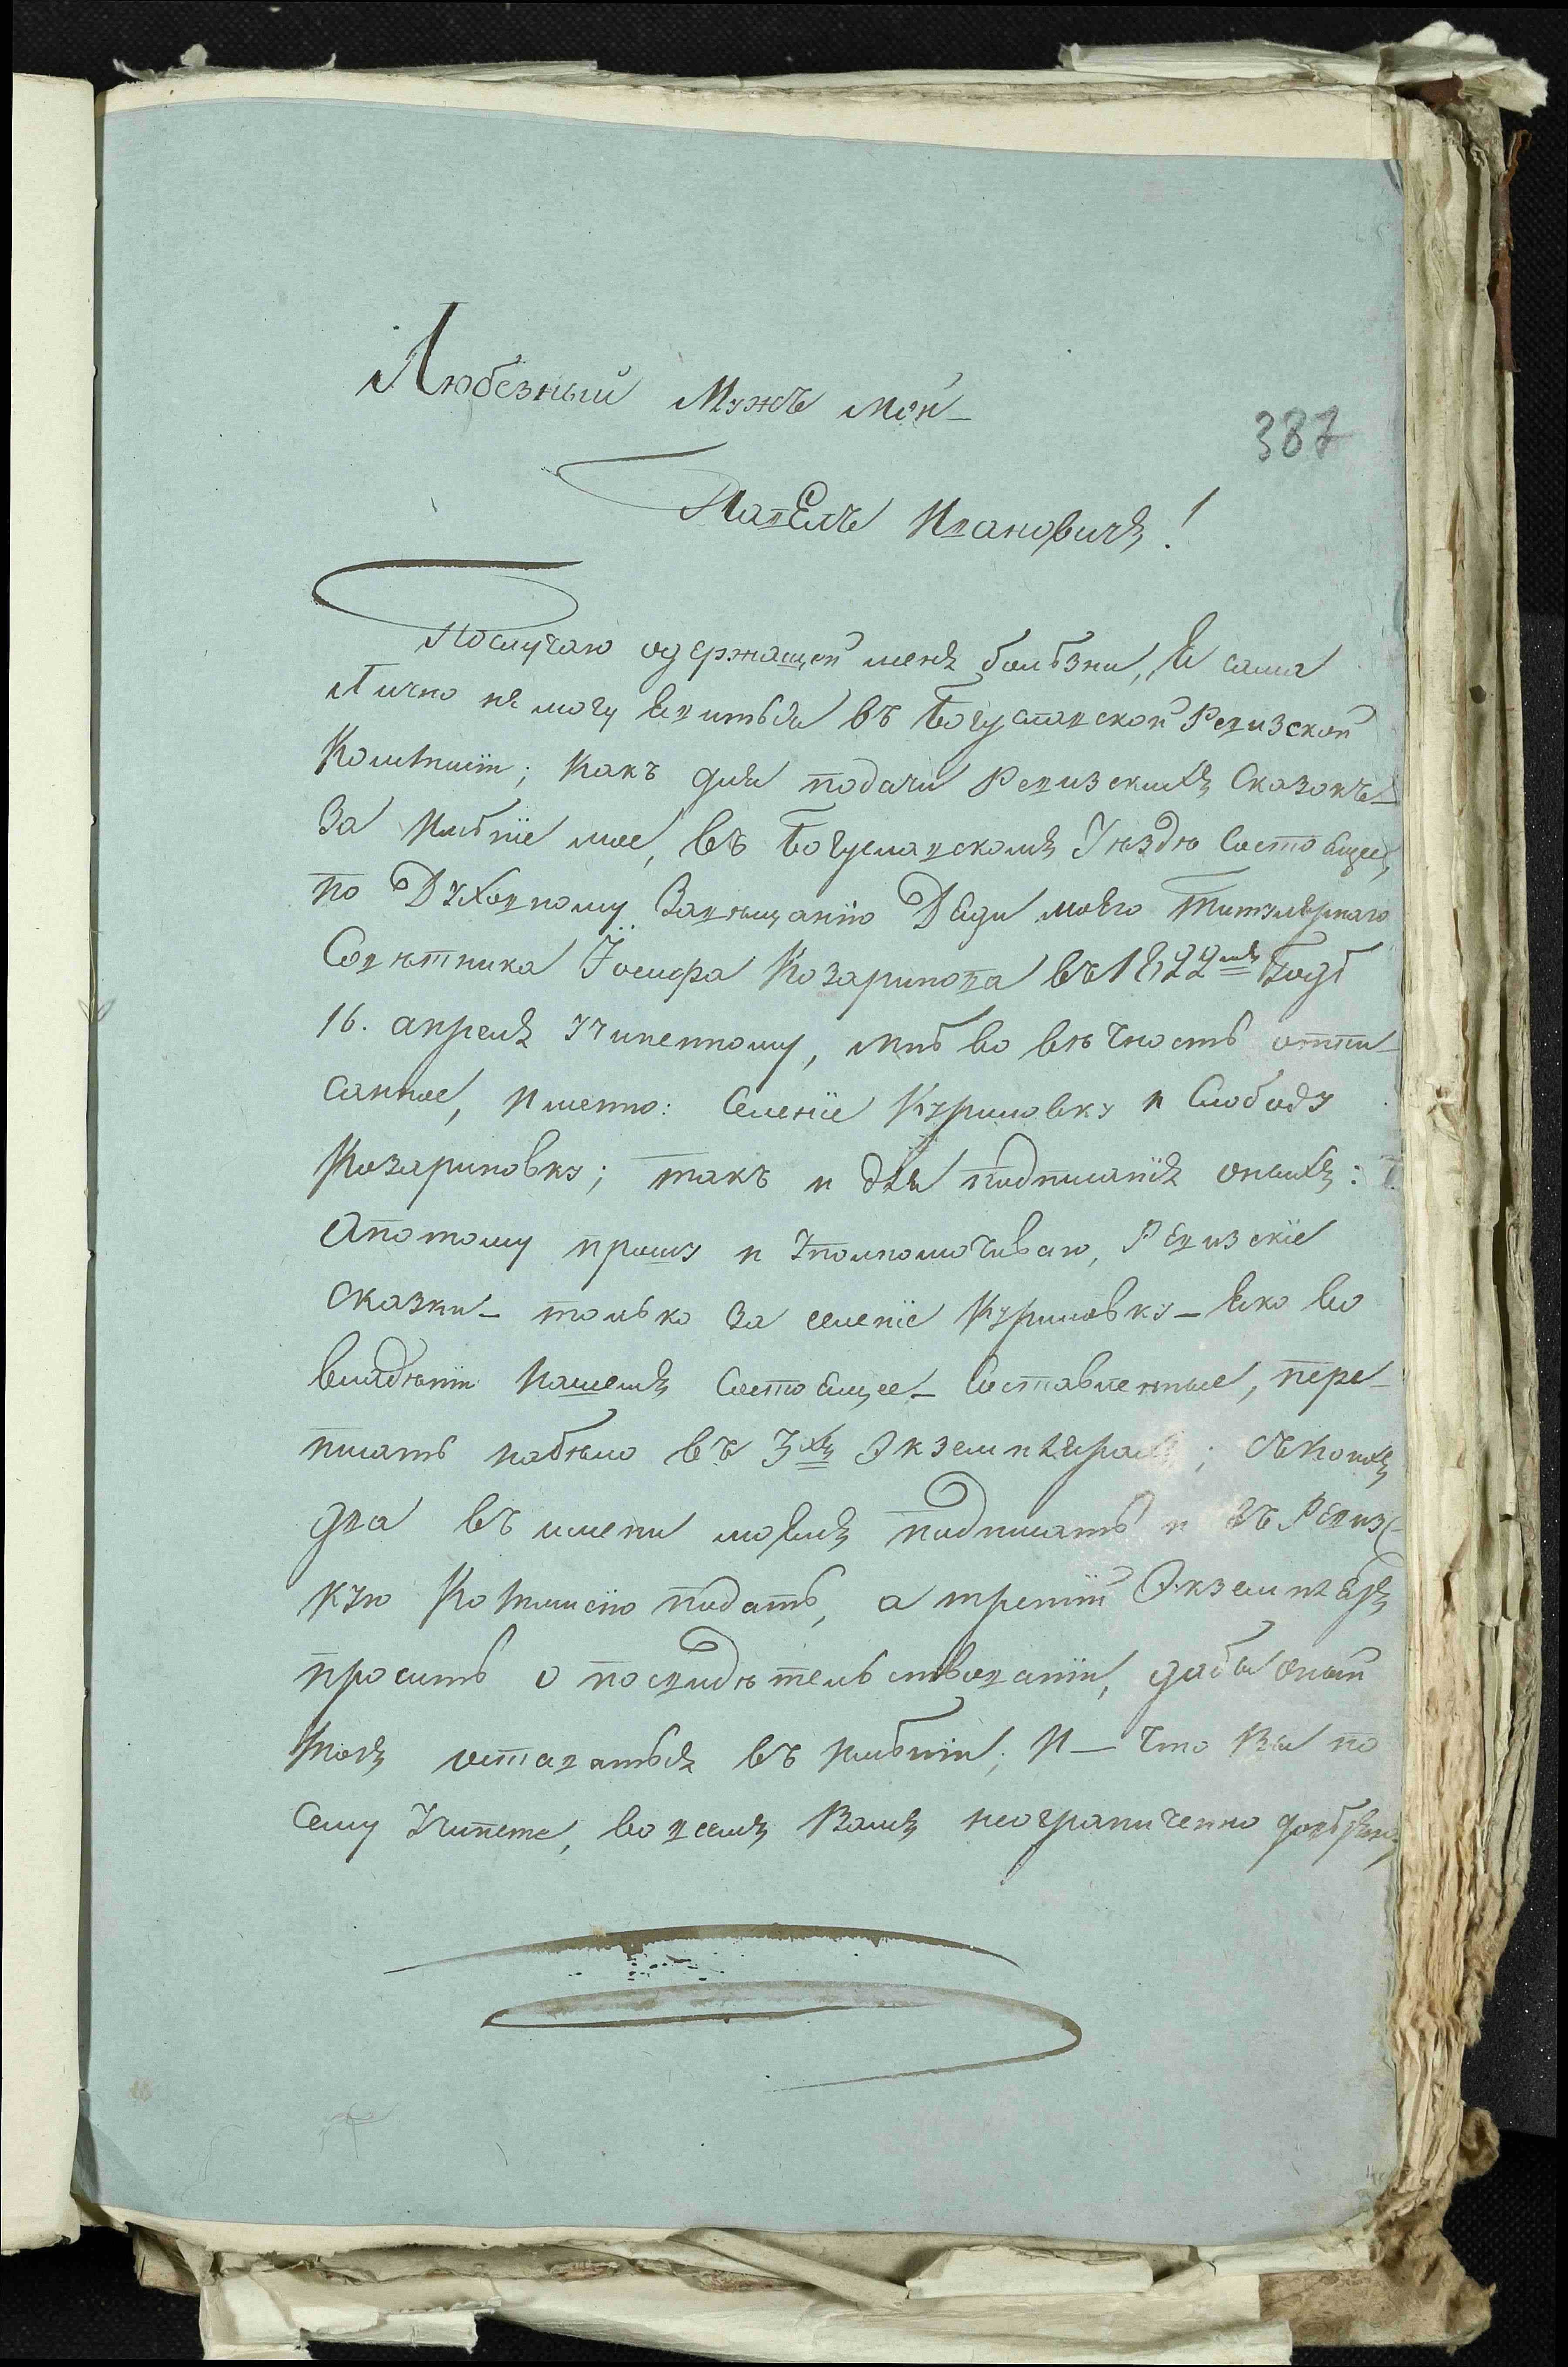 Любезный Мужъ мой
387
Павелъ Ивановичъ!
Послучаю одержащей меня болѣзни, я сама
Лично не могу явитьбя въ Богуславской Ревизской
Коммисіи; какъ для подачи Ревизскихъ Сказокъ
За имѣніе мое, въ Богуславскомъ Уѣздѣ состоящее,
по Духовному Завѣщанію Дяди моего Титулярнаго
Совѣтника Іосифа Козаринова въ 1822мъ Годѣ
16. апреля учиненному, мнѣ во вѣчность отпи-
санное, именно: Селеніе Куриловку и Слободу
Козариновку; такъ и для подписанія оныхъ:
Апотому прошу и уполномочиваю, Ревизскіе
сказки- только за селеніе Куриловку- яко во
владѣніи нашемъ состоящее- составленные, пере-
писать набѣло въ 3хъ Экземплярахъ; съ коихъ
два въ имени моемъ подписать и въ Ревизс-
кую Коммисію подать, а третій Экземпляръ
просить о посвидѣтельствованіи, дабы оный
могъ оставаться въ имѣніи; И- что Вы по
сему учините, во всемъ Вамъ неограниченно довѣряю